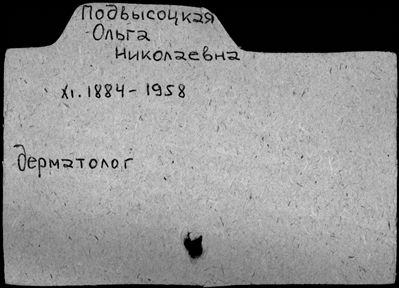 Подвысоцкая
Ольга
Николаевна
XI. 1884 - 1958
Дерматолог